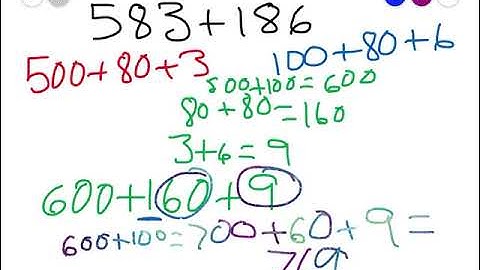 583+186
500+80+3
100+80+6
500+100=600
80+80=160
3+6=9
600+160+9
600+100=700+60+9=
769